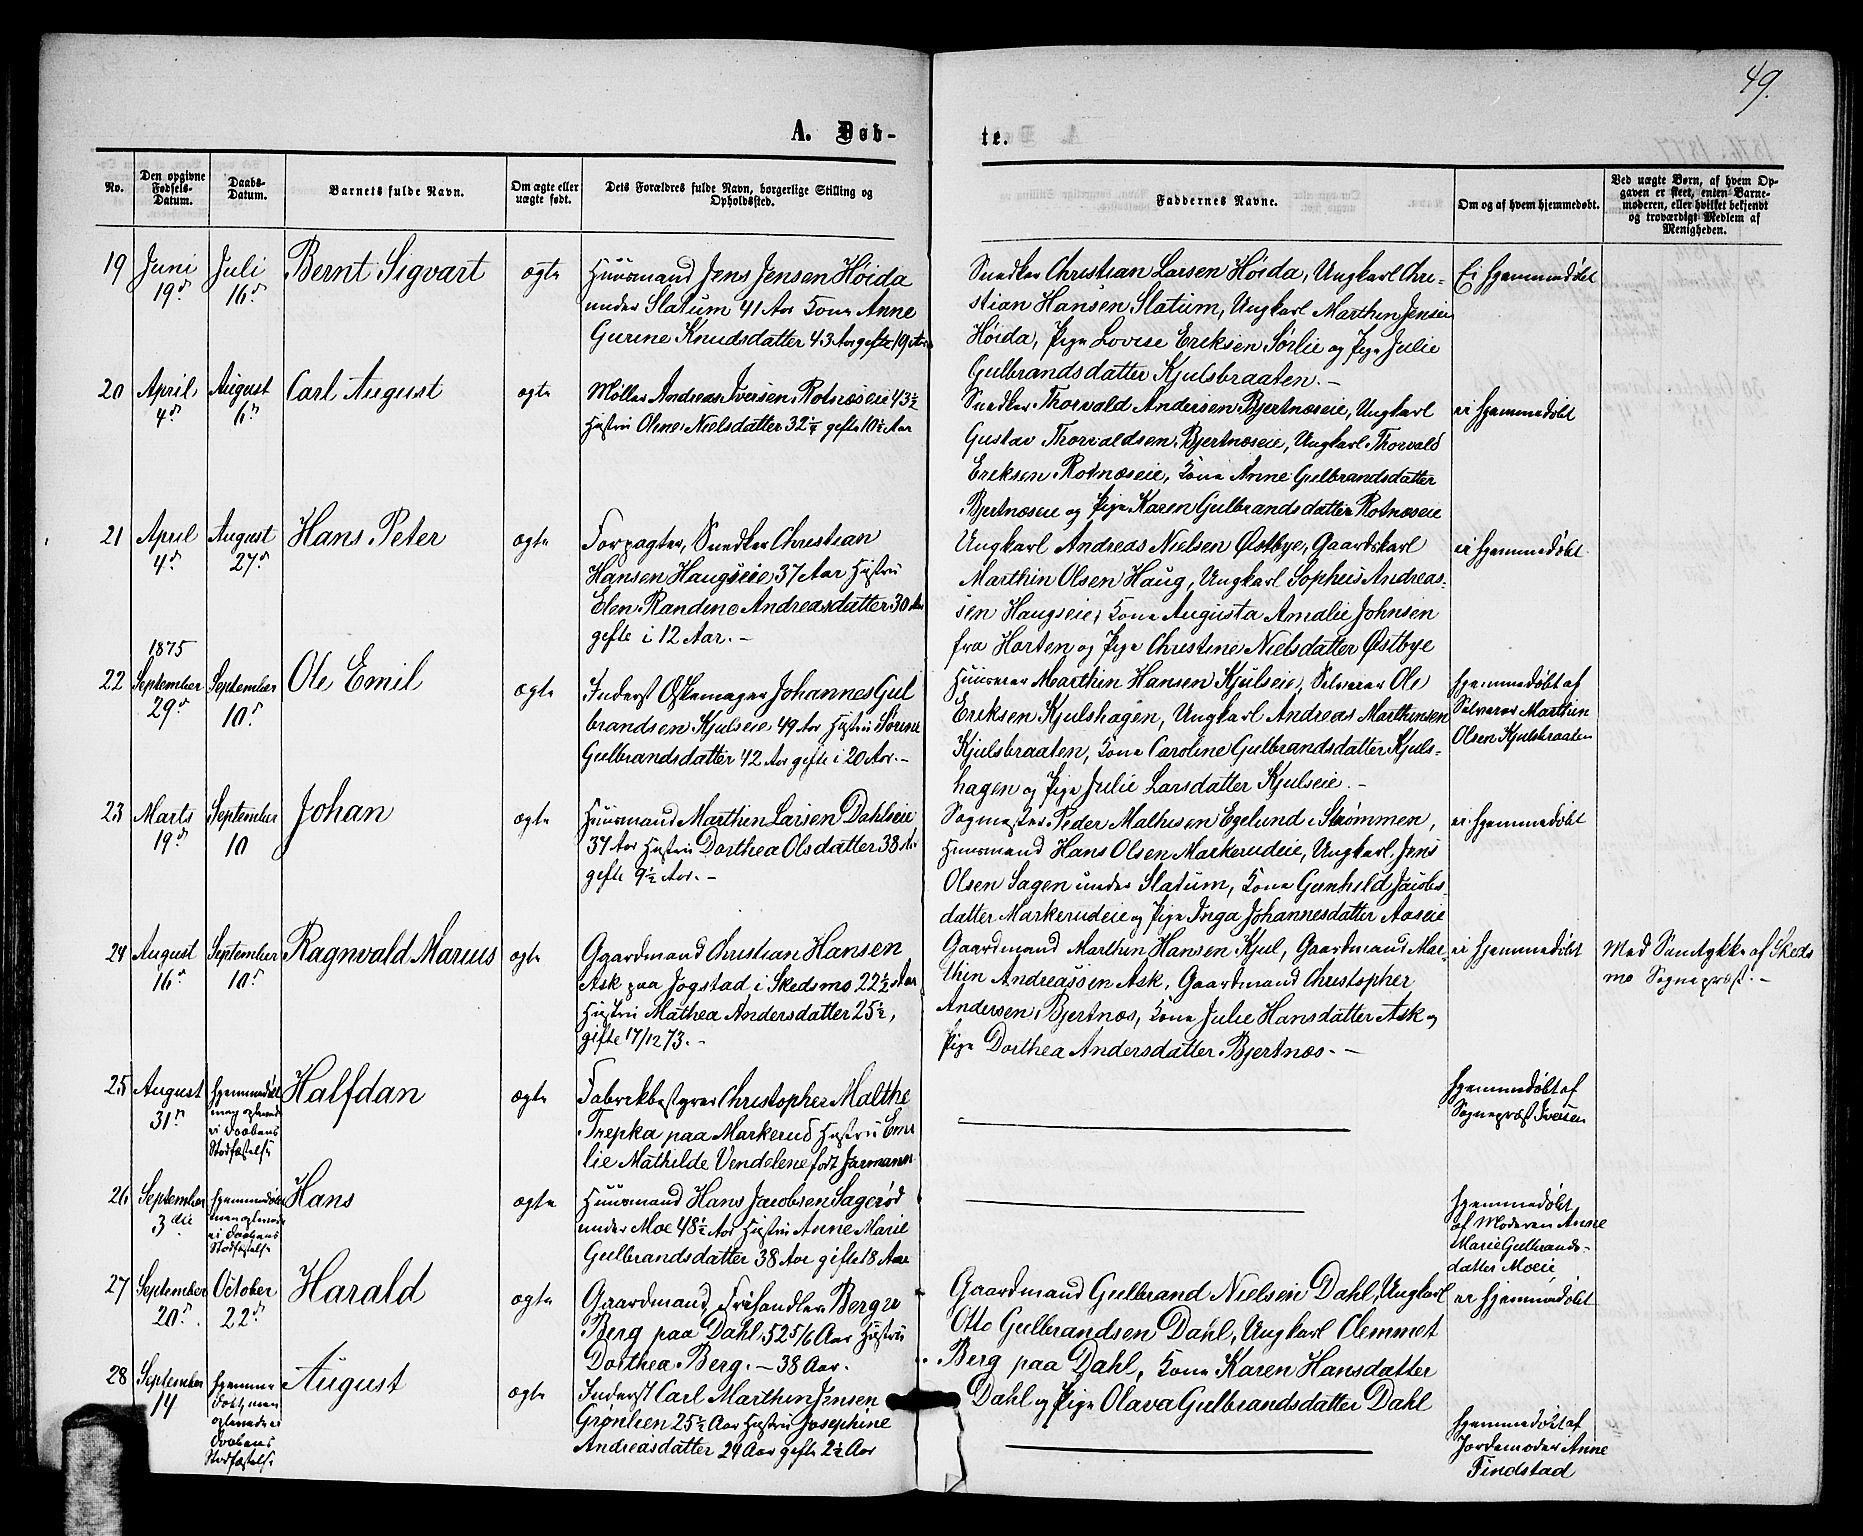 49.
A. Døb-
te.
No.
Den opgivne Fødsels-Datum.
Daabs-Datum.
Barnets fulde Navn.
Om ægte eller uægte født.
Dets Forældres fulde Navn, borgerlige Stilling og Opholdssted.
Faddernes Navne.
Om og af hvem hjemmedøbt.
Ved uægte Børn, af hvem Op-
gaven er skeet, enten Barne-
moderen, eller hvilket bekjendt
og troværdigt Medlem af
Menigheden.
19
Juni
19de
Juli
16de
Bernt Sigvart
ægte
Huusmand Jens Jensen Höida
under Slatum 41 Aar Kone Anne
Gurine Knudsdatter 43 Aar gifte 19 Aar
Snedker Christian Larsen Höida, Ungkarl Chri-
stian Hansen Slatum, Ungkarl Marthin Jensen
Höida, Pige Lovise Eriksen Sørlie og Pige Julie
Gulbrandsdatter Kjulsbraaten. –
Ei hjemmedøbt
20
April
4de
August
6te
Carl August
ægte
Møller Andreas Iversen Rotnæseie 43½
Hustru Oline Nielsdatter 32¼ gifte 10½ Aar
Snedker Thorvald Andersen Bjertnæseie, Ungkarl
Gustav Thorvaldsen Bjertnæseie, Ungkarl Thorvald
Eriksen Rotnæseie, Kone Anne Gulbrandsdatter
Bjertnæseie og Pige Karen Gulbrandsdatter Rotnæseie
ei hjemmedøbt
21
April
4de
August
27de
Hans Peter
ægte
Forpagter, Snedker Christian
Hansen Haugseie 37 Aar Hustru
Elen Randine Andreasdatter 30 Aar
gifte i 12 Aar. –
Ungkarl Andreas Nielsen Østbye, Gaardskarl
Marthin Olsen Haug, Ungkarl Sophus Andreas-
sen Haugseie, Kone Augusta Amalie Johnsen
fra Horten og Pige Christine Nielsdatter Østbye
ei hjemmedøbt
22
1875
September
29de
September
10de
Ole Emil
ægte
Inderst Øskemager Johannes Gul
brandsen Kjulseie 49 Aar Hustru Sørine
Gulbrandsdatter 42 Aar gifte i 20 Aar. –
Huuseier Marthin Hansen Kjulseie, Selveier Ole
Eriksen Kjulshagen, Ungkarl Andreas Marthinsen
Kjulsbraaten, Kone Caroline Gulbrandsdatter Kjuls-
hagen og Pige Julie Larsdatter Kjulseie. –
hjemmedøbt af
Selveier Marthin
Olsen Kjulsbraaten
23
Marts
19de
September
10
Johan
ægte
Huusmand Marthin Larsen Dahlseie
37 Aar Hustru Dorthea Olsdatter 38 Aar
gifte 9½ Aar. –
Sagmester Peder Mathisen Egelund i Strømmen,
Huusmand Hans Olsen Markerudeie, Ungkarl Jens
Olsen Sagen under Slatum, Kone Gunhild Jacobs-
datter Markerudeie og Pige Inga Johannesdatter Aaseie
ei hjemmedøbt
24
August
16de
September
10de
Ragnvald Marius
ægte
Gaardmand Christian Hansen
Ask paa Jogstad i Skedsmo 22½ Aar
Hustru Mathea Andersdatter 25½,
gifte 17/12 73. –
Gaardmand Marthin Hansen Kjul, Gaardmand Mar-
thin Andreassen Ask, Gaardmand Christopher
Andersen Bjertnæs, Kone Julie Hansdatter Ask og
Pige Dorthea Andersdatter Bjertnæs. –
ei hjemmedøbt
Med Samtykke af Skeds
mo Sognepræst. –
25
August
31te
hjemmedøbt
men oplevede
ei Daabens
Stadfæstelse
Halfdan
ægte
Fabrikbestyrer Christopher Malthe
Trepka paa Markerud Hustru Emi
lie Mathilde Vendelene født Jarmann
hjemmedøbt af
Sognepræst Iversen
26
September
3die
hjemmedøbt
men oplevede
ei Daabens
Stadfæstelse
Hans
ægte
Huusmand Hans Jacobsen Sagerød
under Moe 48½ Aar Hustru Anne Marie
Gulbrandsdatter 38 Aar gifte 18 Aar
hjemmedøbt
af Moderen Anne
Marie Gulbrands-
datter Moeie
27
September
20de
October
22de
Harald
ægte
Gaardmand, Frihandler Berger
Berg paa Dahl 52 5/6 Aar Hustru
Dorthea Berg. – 38 Aar.
Gaardmand Gulbrand Nielsen Dahl, Ungkarl
Otto Gulbrandsen Dahl, Ungkarl Clemmet
Berg paa Dahl, Kone Karen Hansdatter
Dahl og Pige Olava Gulbrandsdatter Dahl
ei hjemmedøbt
28
September
14
hjemme
døbt, men
oplevede ei
Daabens
Stadfæstelse
August
ægte
Inderst Carl Marthin Jensen
Grønlien 25½ Aar Hustru Josephine
Andreasdatter 24 Aar gifte 2½ Aar
hjemmedøbt af
Jordemoder Anne
Findstad